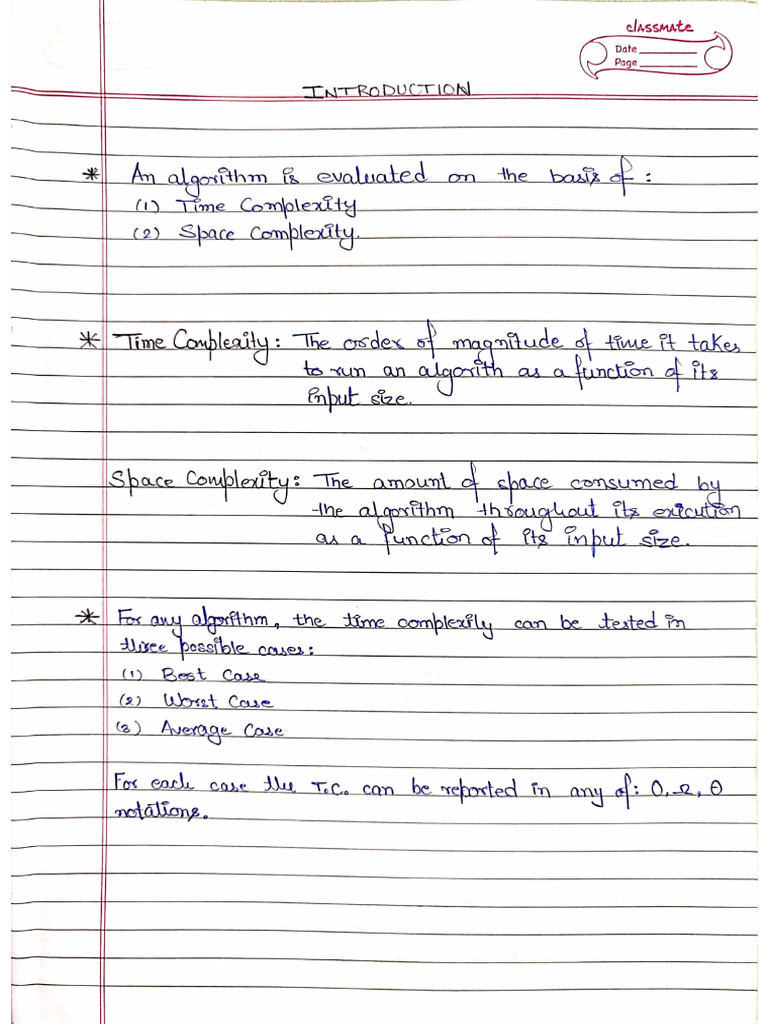 classmate
Date
Page
INTRODUCTION
* An algorithm is evaluated on the basis of :
(1) Time Complexity
(2) Space Complexity.
* Time Complexity : The order of magnitude of time it takes
to run an algorith as a function of its
input size.
Space Complexity : The amount of space consumed by
the algorithm throughout its execution
as a function of its input size.
* For any algorithm, the time complexity can be tested in
three possible cases :
(1) Best Case
(2) Worst Case
(3) Average Case
For each case the T.C. can be reported in any of : O, Ω, θ
notations.